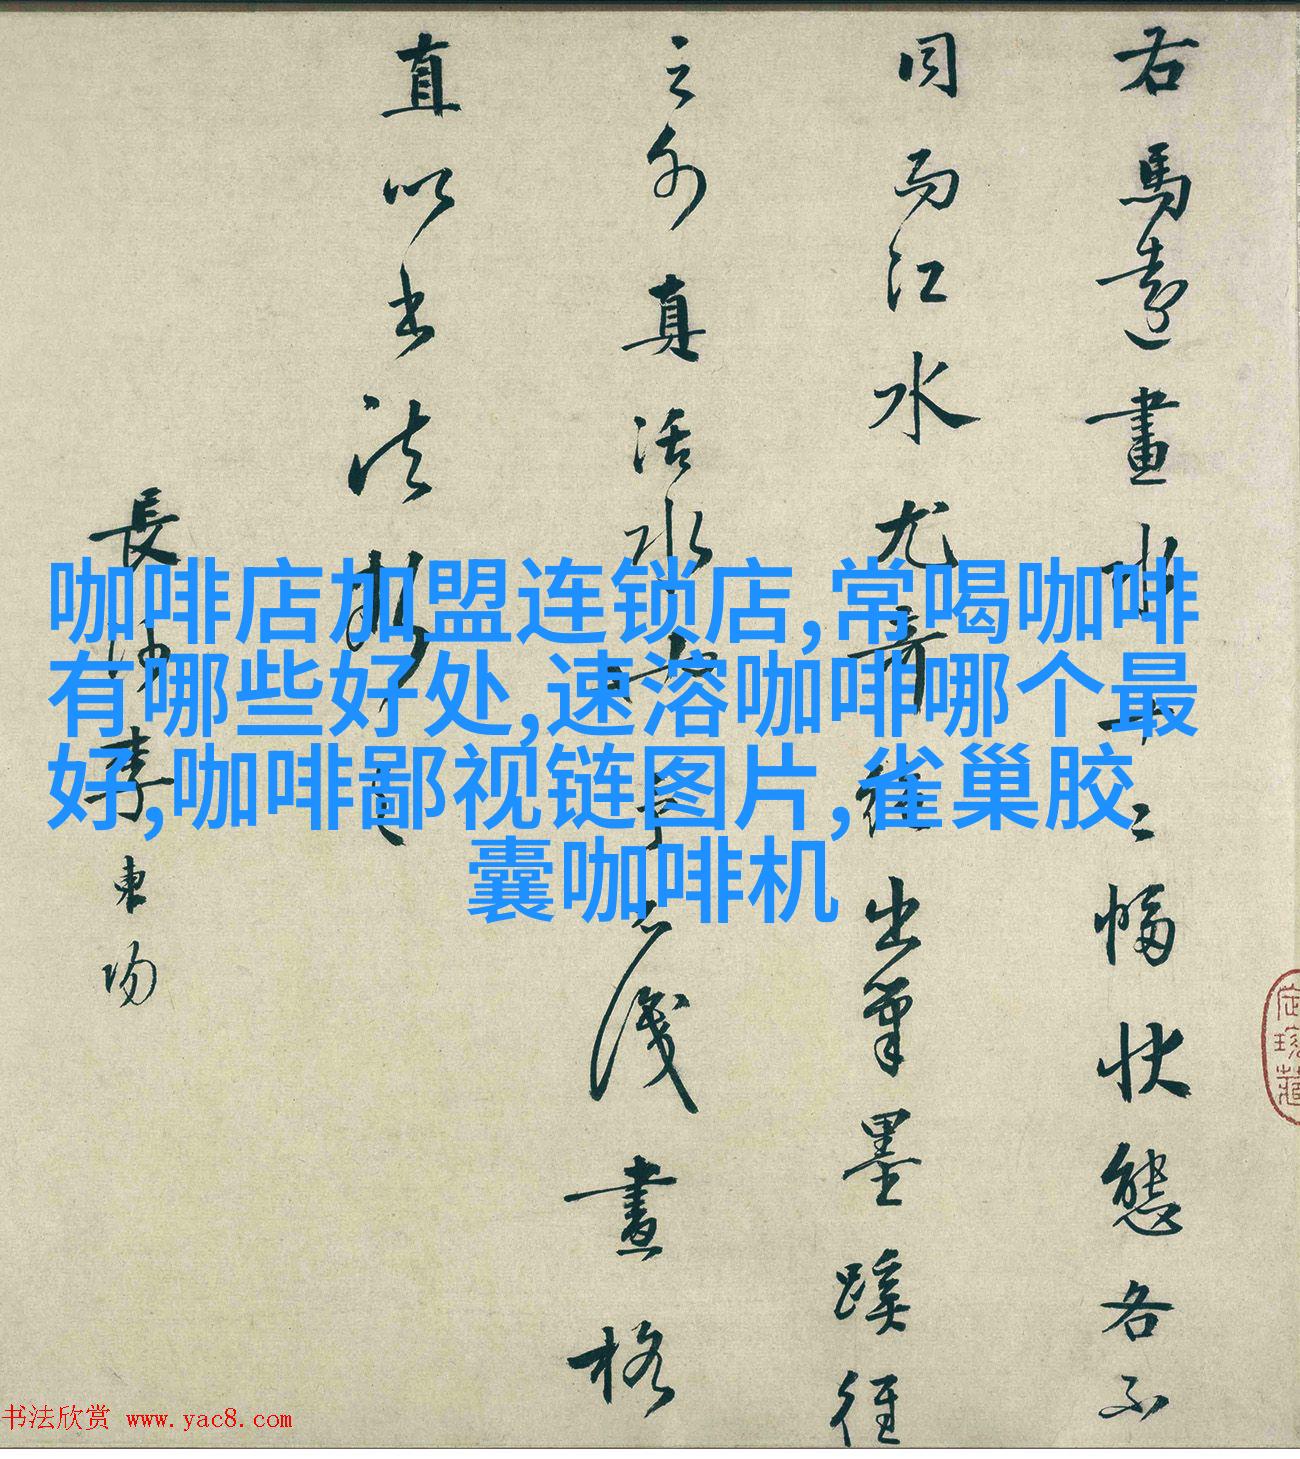 右馬遠畫水十二幅狀態各不
同而江水尤奇絕出筆墨蹊徑
之外真活水也 畫格
直以書法
長沙李東陽
咖啡店加盟连锁店,常喝咖啡
有哪些好处,速溶咖啡哪个最
好,咖啡鄙视链图片,雀巢胶
囊咖啡机
书法欣赏 www.yac8.com